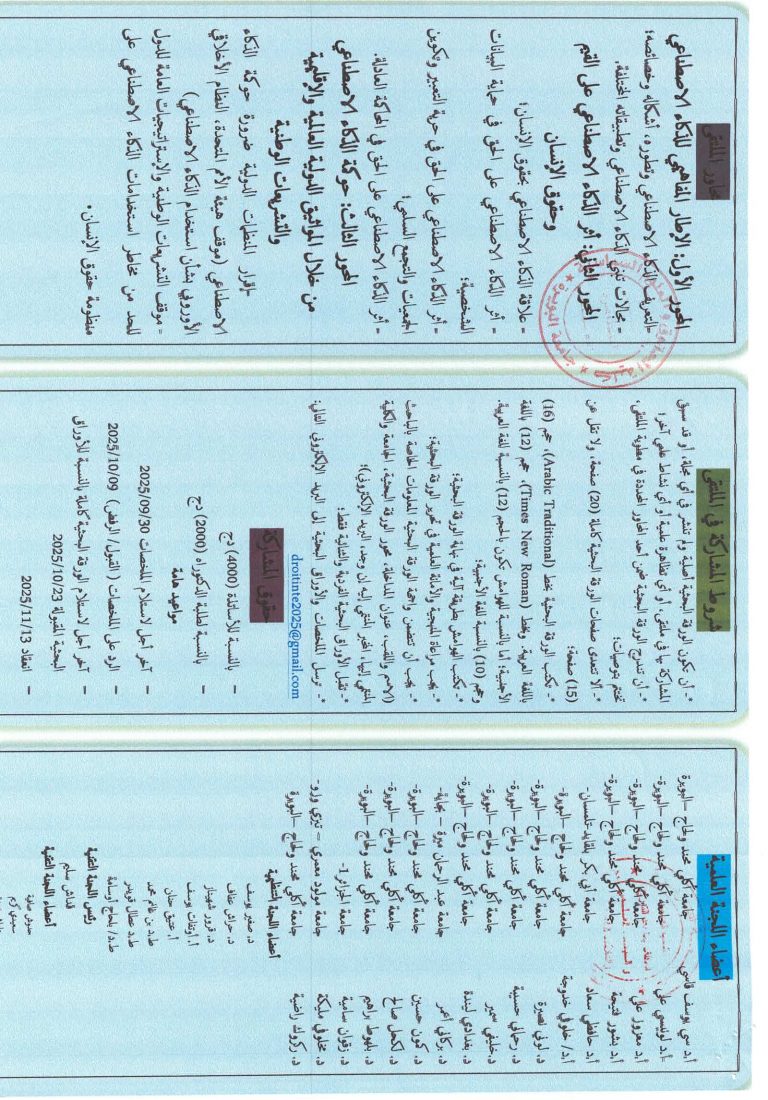 محاور الملتقى
المحور الأول: الإطار المفاهيمي للذكاء الاصطناعي
-التعريف بالذكاء الاصطناعي وتطوره، أشكاله وخصائصه؛
- مجالات تبني الذكاء الاصطناعي وتطبيقاته المختلفة.
المحور الثاني: أثر الذكاء الاصطناعي على القيم
وحقوق الإنسان
- علاقة الذكاء الاصطناعي بحقوق الإنسان؛
- أثر الذكاء الاصطناعي على الحق في حماية البيانات
الشخصية؛
- أثر الذكاء الاصطناعي على الحق في حرية التعبير وتكوين
الجمعيات والتجمع السلمي؛
- أثر الذكاء الاصطناعي على الحق في المحاكمة العادلة.
المحور الثالث: حوكمة الذكاء الاصطناعي
من خلال المواثيق الدولية العالمية والإقليمية
والتشريعات الوطنية
-إقرار المنظمات الدولية ضرورة حوكمة الذكاء
الاصطناعي (موقف هيئة الأمم المتحدة، النظام الأخلاقي
الأوروبي بشأن استخدام الذكاء الاصطناعي)
- موقف التشريعات الوطنية والإستراتيجيات العامة للدول
للحد من مخاطر استخدامات الذكاء الاصطناعي على
منظومة حقوق الإنسان.
شروط المشاركة في الملتقى
*- أن تكون الورقة البحثية أصلية ولم تنشر في أي مجلة، أو قد سبق
المشاركة بها في ملتقى، أو أي تظاهرة علمية أو أي نشاط علمي آخر؛
*- أن تندرج الورقة البحثية ضمن احد المحاور المحددة في مطوية الملتقى،
تختم بتوصيات؛
*- ألا تتعدى صفحات الورقة البحثية كاملة (20) صفحة، ولا تقل عن
(15) صفحة؛
*- تكتب الورقة البحثية بخط (Arabic Traditional)، حجم (16)
باللغة العربية، وخط (Times New Roman)، حجم (12) باللغة
الأجنبية؛ أما بالنسبة للهوامش تكون بالحجم (12) بالنسبة للغة العربية.
وحجم (10) بالنسبة للغة الأجنبية؛
*- تكتب الهوامش بطريقة آلية في نهاية الورقة البحثية؛
*- يجب مراعاة المنهجية والأمانة العلمية في تحرير الورقة البحثية؛
*- يجب أن تتضمن واجهة الورقة البحثية المعلومات الخاصة بالباحث
(الاسم واللقب، عنوان المداخلة، محور الورقة البحثية، الجامعة والكلية
المنتمي إليها، المخبر المنتمي إليه إن وجد، البريد الإلكتروني)؛
*- تقبل الأوراق البحثية الفردية والثنائية فقط؛
*- ترسل الملخصات والأوراق البحثية إلى البريد الإلكتروني التالي:
droitinte2025@gmail.com
حقوق المشاركة
– بالنسبة للأساتذة (4000) دج
– بالنسبة لطلبة الدكتوراه (2000) دج
مواعيد هامة
– آخر أجل لاستلام الملخصات 2025/09/30
– الرد على الملخصات ( القبول/ الرفض) 2025/10/09
– آخر أجل لاستلام الورقة البحثية كاملة بالنسبة للأوراق
البحثية المقبولة 2025/10/23
– انعقاد 2025/11/13
أعضاء اللجنة العلمية
أ.د سي يوسف قاسي جامعة أكلي محند ولحاج –البويرة
أ.د لونيسي علي جامعة أكلي محند ولحاج –البويرة-
أ.د معزوز علي جامعة أكلي محند ولحاج –البويرة-
أ.د بشور فتيحة جامعة أكلي محند ولحاج –البويرة-
أ.د حافظي سعاد جامعة أبي بكر بلقايد-تلمسان
أ.د/ خلوفي خدوجة جامعة أكلي محند ولحاج –البويرة-
د. لوني نصيرة جامعة أكلي محند ولحاج –البويرة-
د. رحماني حسيبة جامعة أكلي محند ولحاج –البويرة
د. خليفي سمير جامعة أكلي محند ولحاج –البويرة-
د. بغدادي ليندة جامعة أكلي محند ولحاج –البويرة-
د. بركاني أعمر جامعة عبد الرحمان ميرة – بجاية-
د. كمون حسين جامعة أكلي محند ولحاج –البويرة-
د. لكحل صالح جامعة أكلي محند ولحاج –البويرة-
د. يلهوط براهيم جامعة أكلي محند ولحاج –البويرة-
د. زقوان سامية جامعة الجزائر 1-
د. مخلوفي مليكة جامعة مولود معمري – تيزي وزو-
د. ركروك راضية جامعة أكلي محند ولحاج –البويرة
أعضاء اللجنة التنظيمية
د. صغير يوسف
د. حراش عفاف
د. قرور شهيناز
أ. اونفات يوسف
أ. عتيق حنان
ط.د بن غانم محمد
ط.د عطال قويدر
ط.د/ بلحاج أوسامة
رئيس اللجنة التقنية
قداش سليم
أعضاء اللجنة التقنية